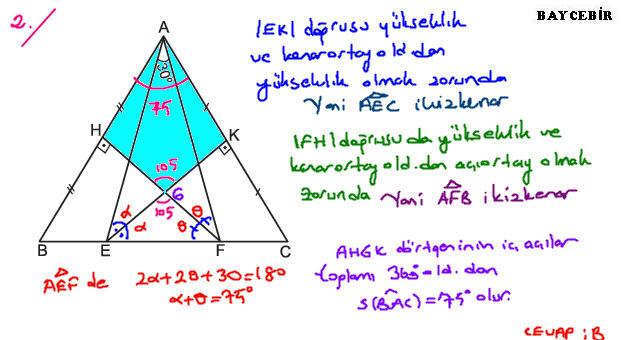 BAYCEBİR
2.
|EK| doğrusu yükseklik
ve kenarortay old.dan
yükseklik olmak zorunda
Yani AEC ikizkenar
|FH| doğrusu da yükseklik ve
kenarortay old.dan açıortay olmak
zorunda Yani AFB ikizkenar
AHGK dörtgeninin iç açılar
toplamı 360° old.dan
s(BAC) = 75° olur.
A
30°
75
H
K
105
G
105
α
α
θ
θ
B
E
F
C
AEF de 2α+2θ+30=180
α+θ=75°
CEVAP : B